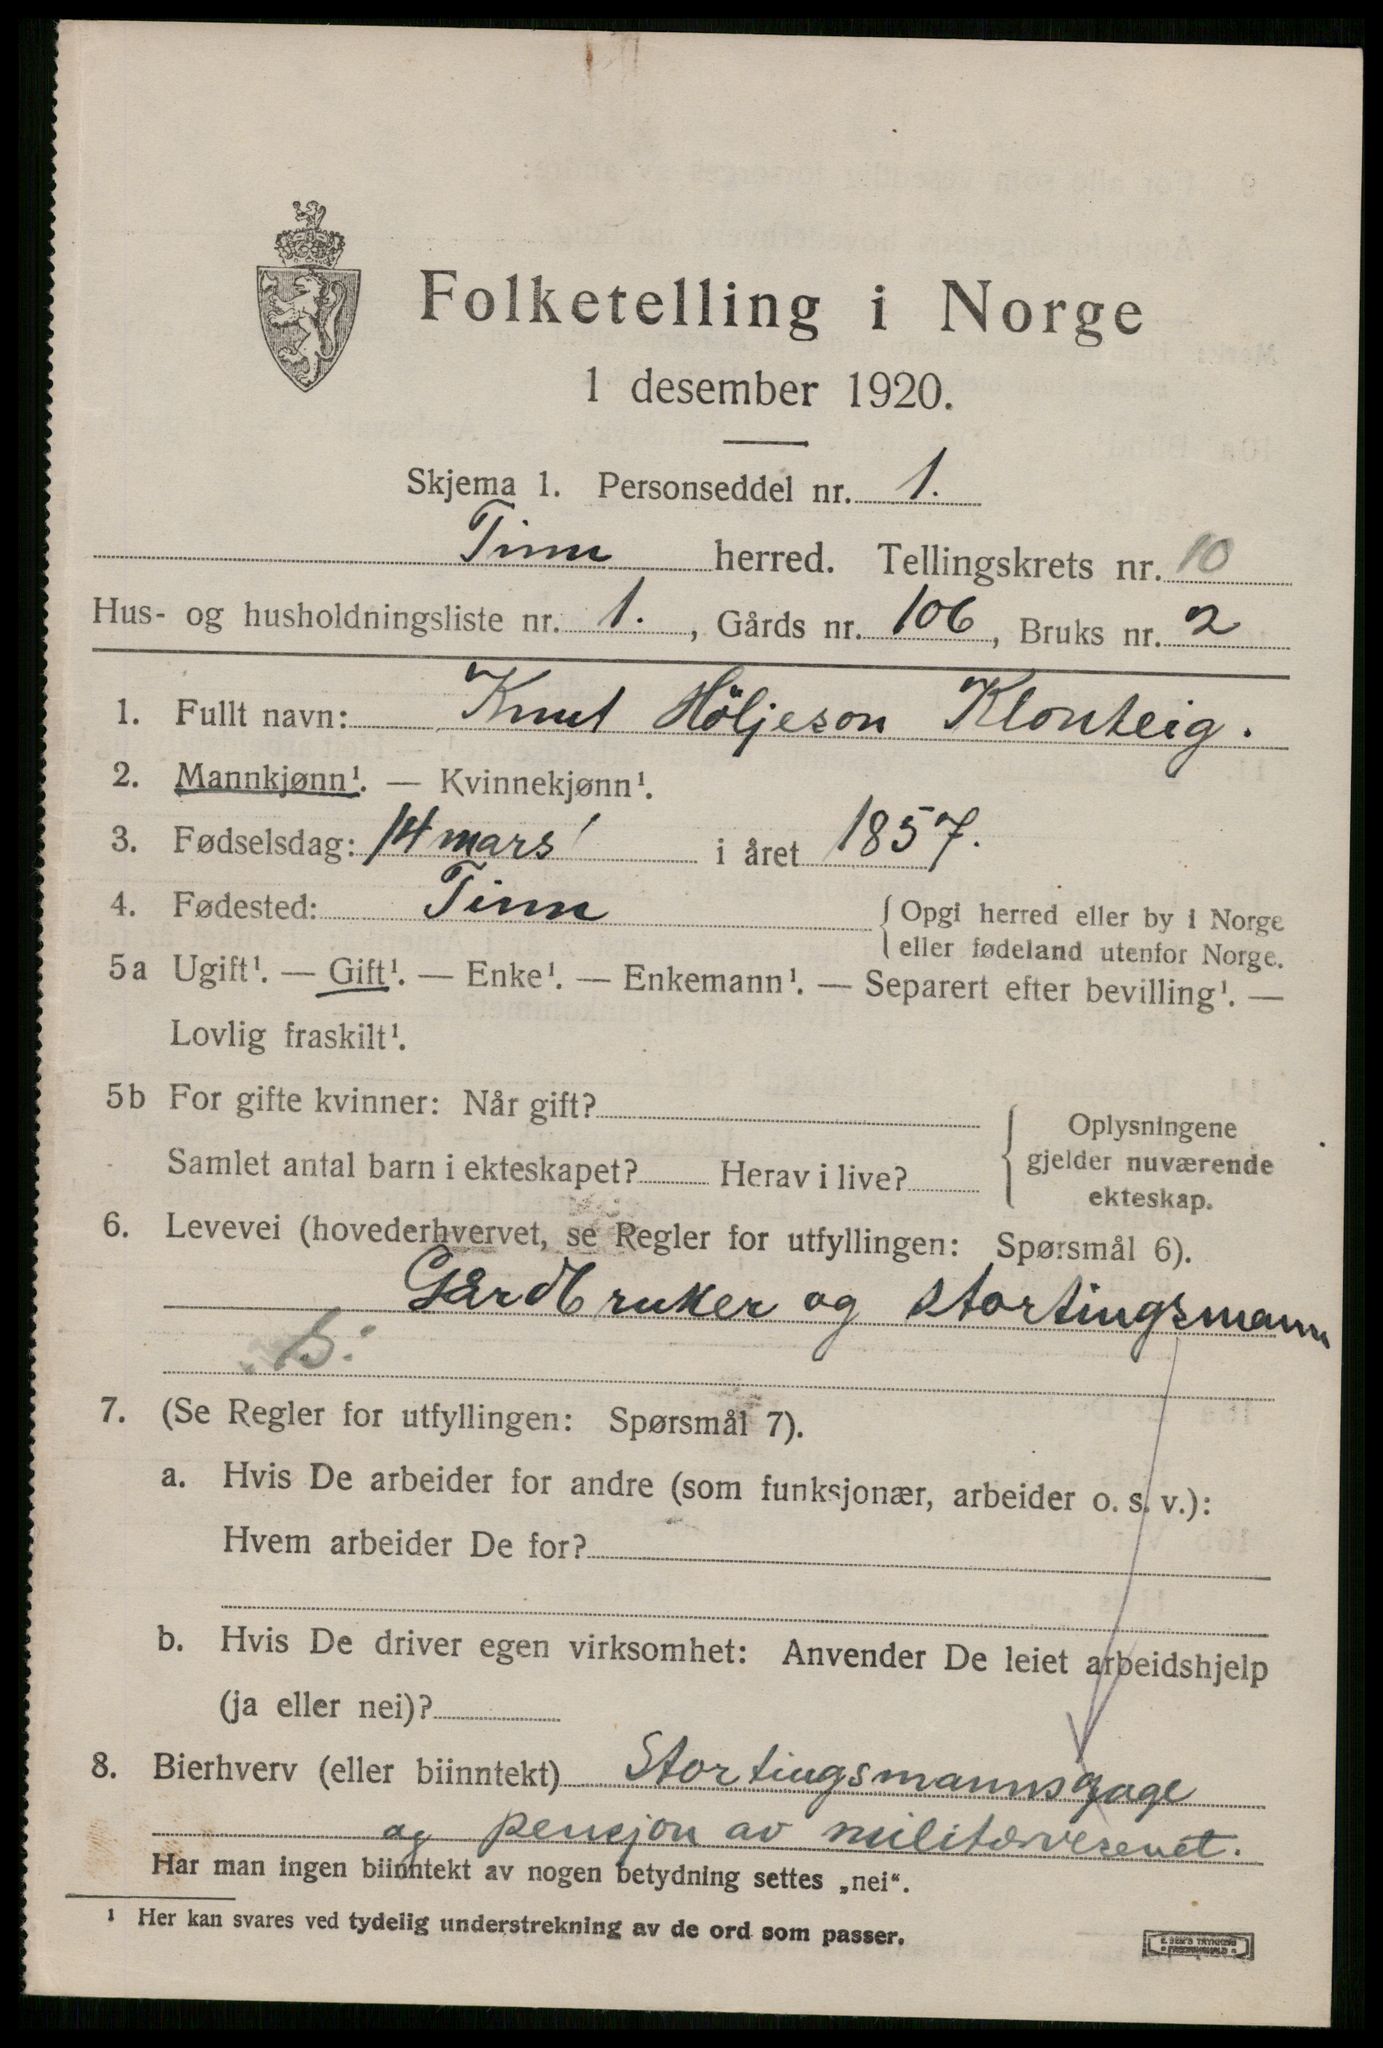 Folketelling i Norge
1 desember 1920.
Skjema 1. Personseddel nr. 1.
Tinn herred. Tellingskrets nr. 10
Hus- og husholdningsliste nr. 1., Gårds nr. 106, Bruks nr. 2
1. Fullt navn: Knut Höljeson Klonteig.
2. Mannkjønn¹. — Kvinnekjønn¹.
3. Fødselsdag: 14 mars i året 1857.
4. Fødested: Tinn { Opgi herred eller by i Norge
eller fødeland utenfor Norge.
5a Ugift¹. — Gift¹. — Enke¹. — Enkemann¹. — Separert efter bevilling¹. —
Lovlig fraskilt¹.
5b For gifte kvinner: Når gift?
Samlet antal barn i ekteskapet? Herav i live?
{ Oplysningene
gjelder nuværende
ekteskap.
6. Levevei (hovederhvervet, se Regler for utfyllingen: Spørsmål 6).
Gårdbruker og stortingsmann
7. (Se Regler for utfyllingen: Spørsmål 7).
a. Hvis De arbeider for andre (som funksjonær, arbeider o. s. v.):
Hvem arbeider De for?
b. Hvis De driver egen virksomhet: Anvender De leiet arbeidshjelp
(ja eller nei)?
8. Bierhverv (eller biinntekt) Stortingsmannsgage
og pensjon av militærvesenet.
Har man ingen biinntekt av nogen betydning settes „nei“.
¹ Her kan svares ved tydelig understrekning av de ord som passer.